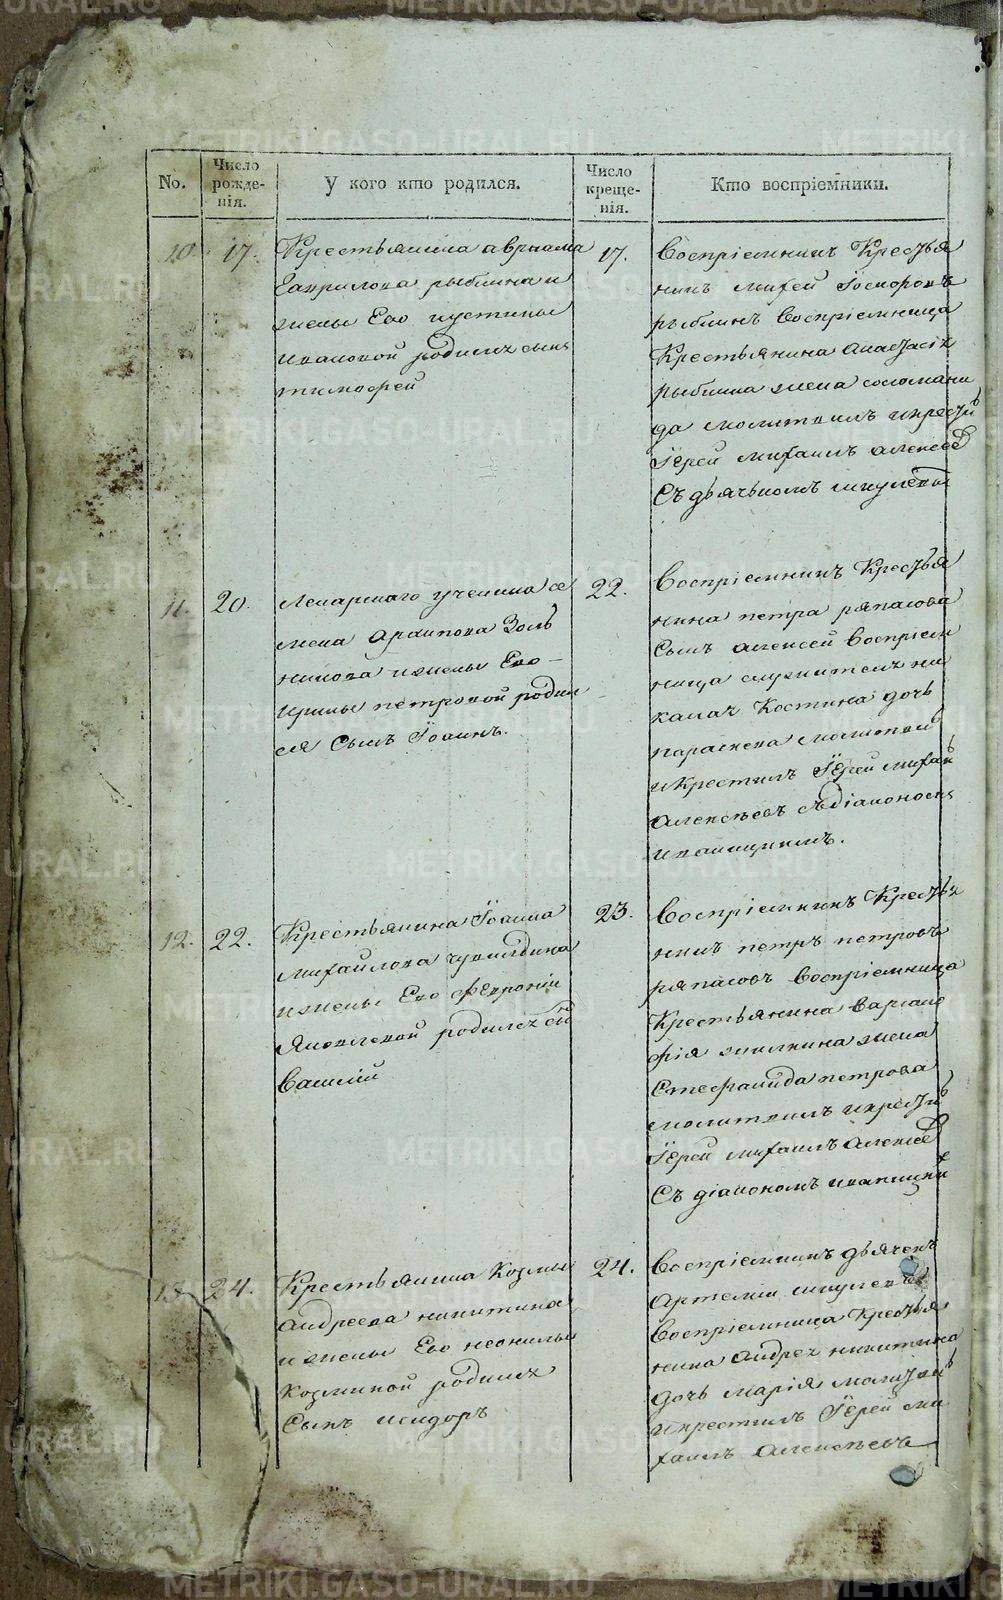 METRIKI.GASO-URAL.RU
No.
Число рожде-нія.
У кого кто родился.
Число креще-нія.
Кто воспріемники.
10.
17.
Крестьянина авраама
Гаврилова рыбкина и
жены Его иустины
ивановой родилъ сынъ
тимофей
17.
Воспріемникъ Крестья
нинъ михей
рыбкинъ Воспріемница
Крестьянина
рыбкина жена соломани
да молитвилъ икрести
Іерей михаилъ алексее
Съ дьячькомъ
11.
20.
Лекарскаго ученика се
мена архипова
никова ижены Его
ирины петровой роди
ся Сынъ Іоаннъ.
22.
Воспріемникъ Крестья
нина петра ряпасова
Сынъ алексей Воспріем
ница служителя ни
Костина дочь
параскева молитви
икрестилъ Іерей миха
Алексѣевъ съ діакономъ
12.
22.
Крестьянина Іоанна
михайлова
ижены Его февроніи
Яковлевой родился сы
Василій
23.
Воспріемникъ Крестья
нинъ петръ петровъ
ряпасовъ Воспріемница
Крестьянина Варѳоло
жена
Стефанида петрова
молитвилъ икрести
Іерей михаилъ Алексѣе
Съ діакономъ
13.
24.
Крестьянина Козмы
андреева никитина
ижены Его неонилы
Козминой родился
Сынъ исидоръ
24.
Воспріемникъ дьячекъ
Артемій
Воспріемница Крестья
нина андрея никитина
дочь марія молитви
икрестилъ Іерей ми
хаилъ Алексѣевъ